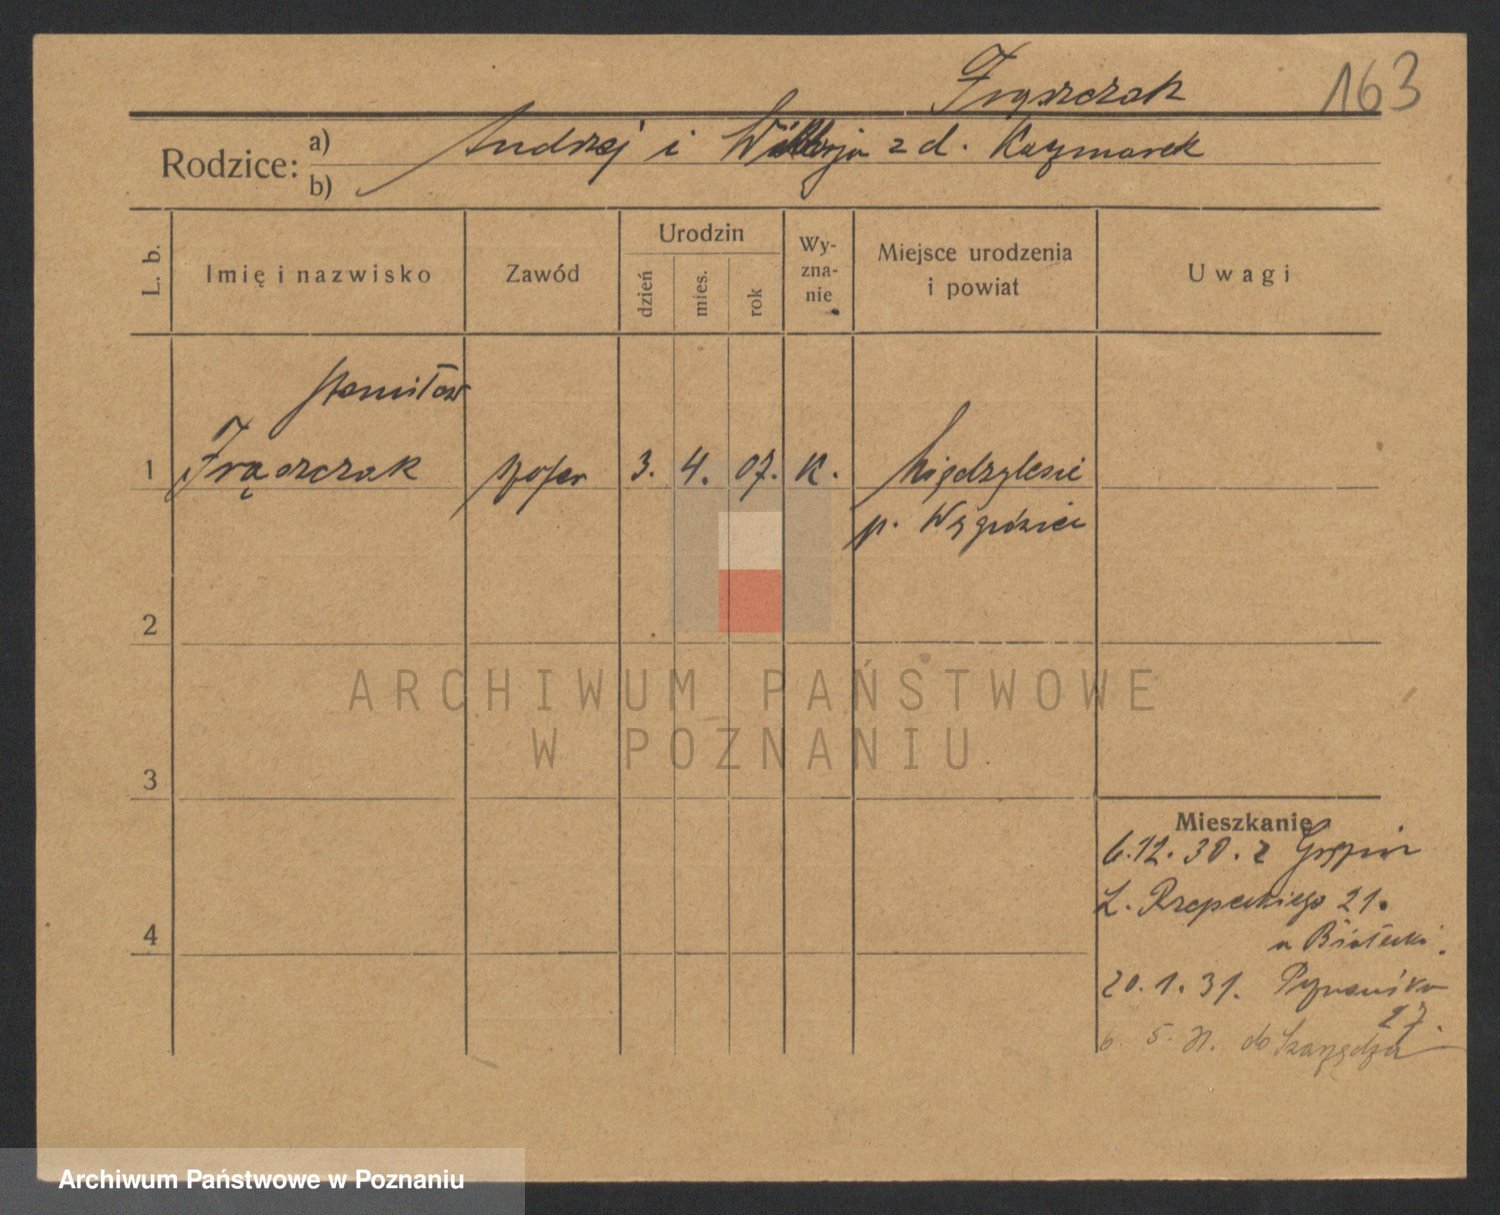 Frąszczak 163
Rodzice: a) Andrzej i Wiktorja z d. Kaczmarek
b)
L. b. Imię i nazwisko Zawód Urodzin dzień mies. rok Wy-zna-nie Miejsce urodzenia i powiat Uwagi
Stanisław
1 Frąszczak szofer 3. 4. 07. K. Międzylesie
p. Wągrówiec
2
ARCHIWUM PAŃSTWOWE
W POZNANIU
3
Mieszkanie
6.12.30. z
Rzepeckiego 21.
u Białecki.
4
20.1.31.
27.
6. 5. 31. do
Archiwum Państwowe w Poznaniu